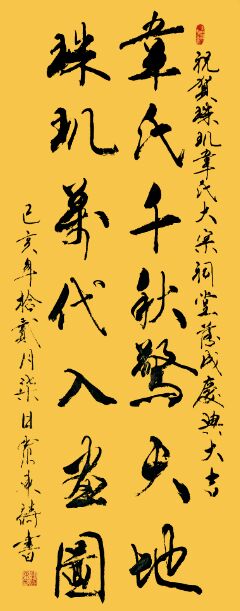 祝贺珠玑韋氏大宗祠堂落成慶典大吉
韋氏千秋驚天地
珠玑萬代入画圖
己亥年拾貳月柒日東濤書